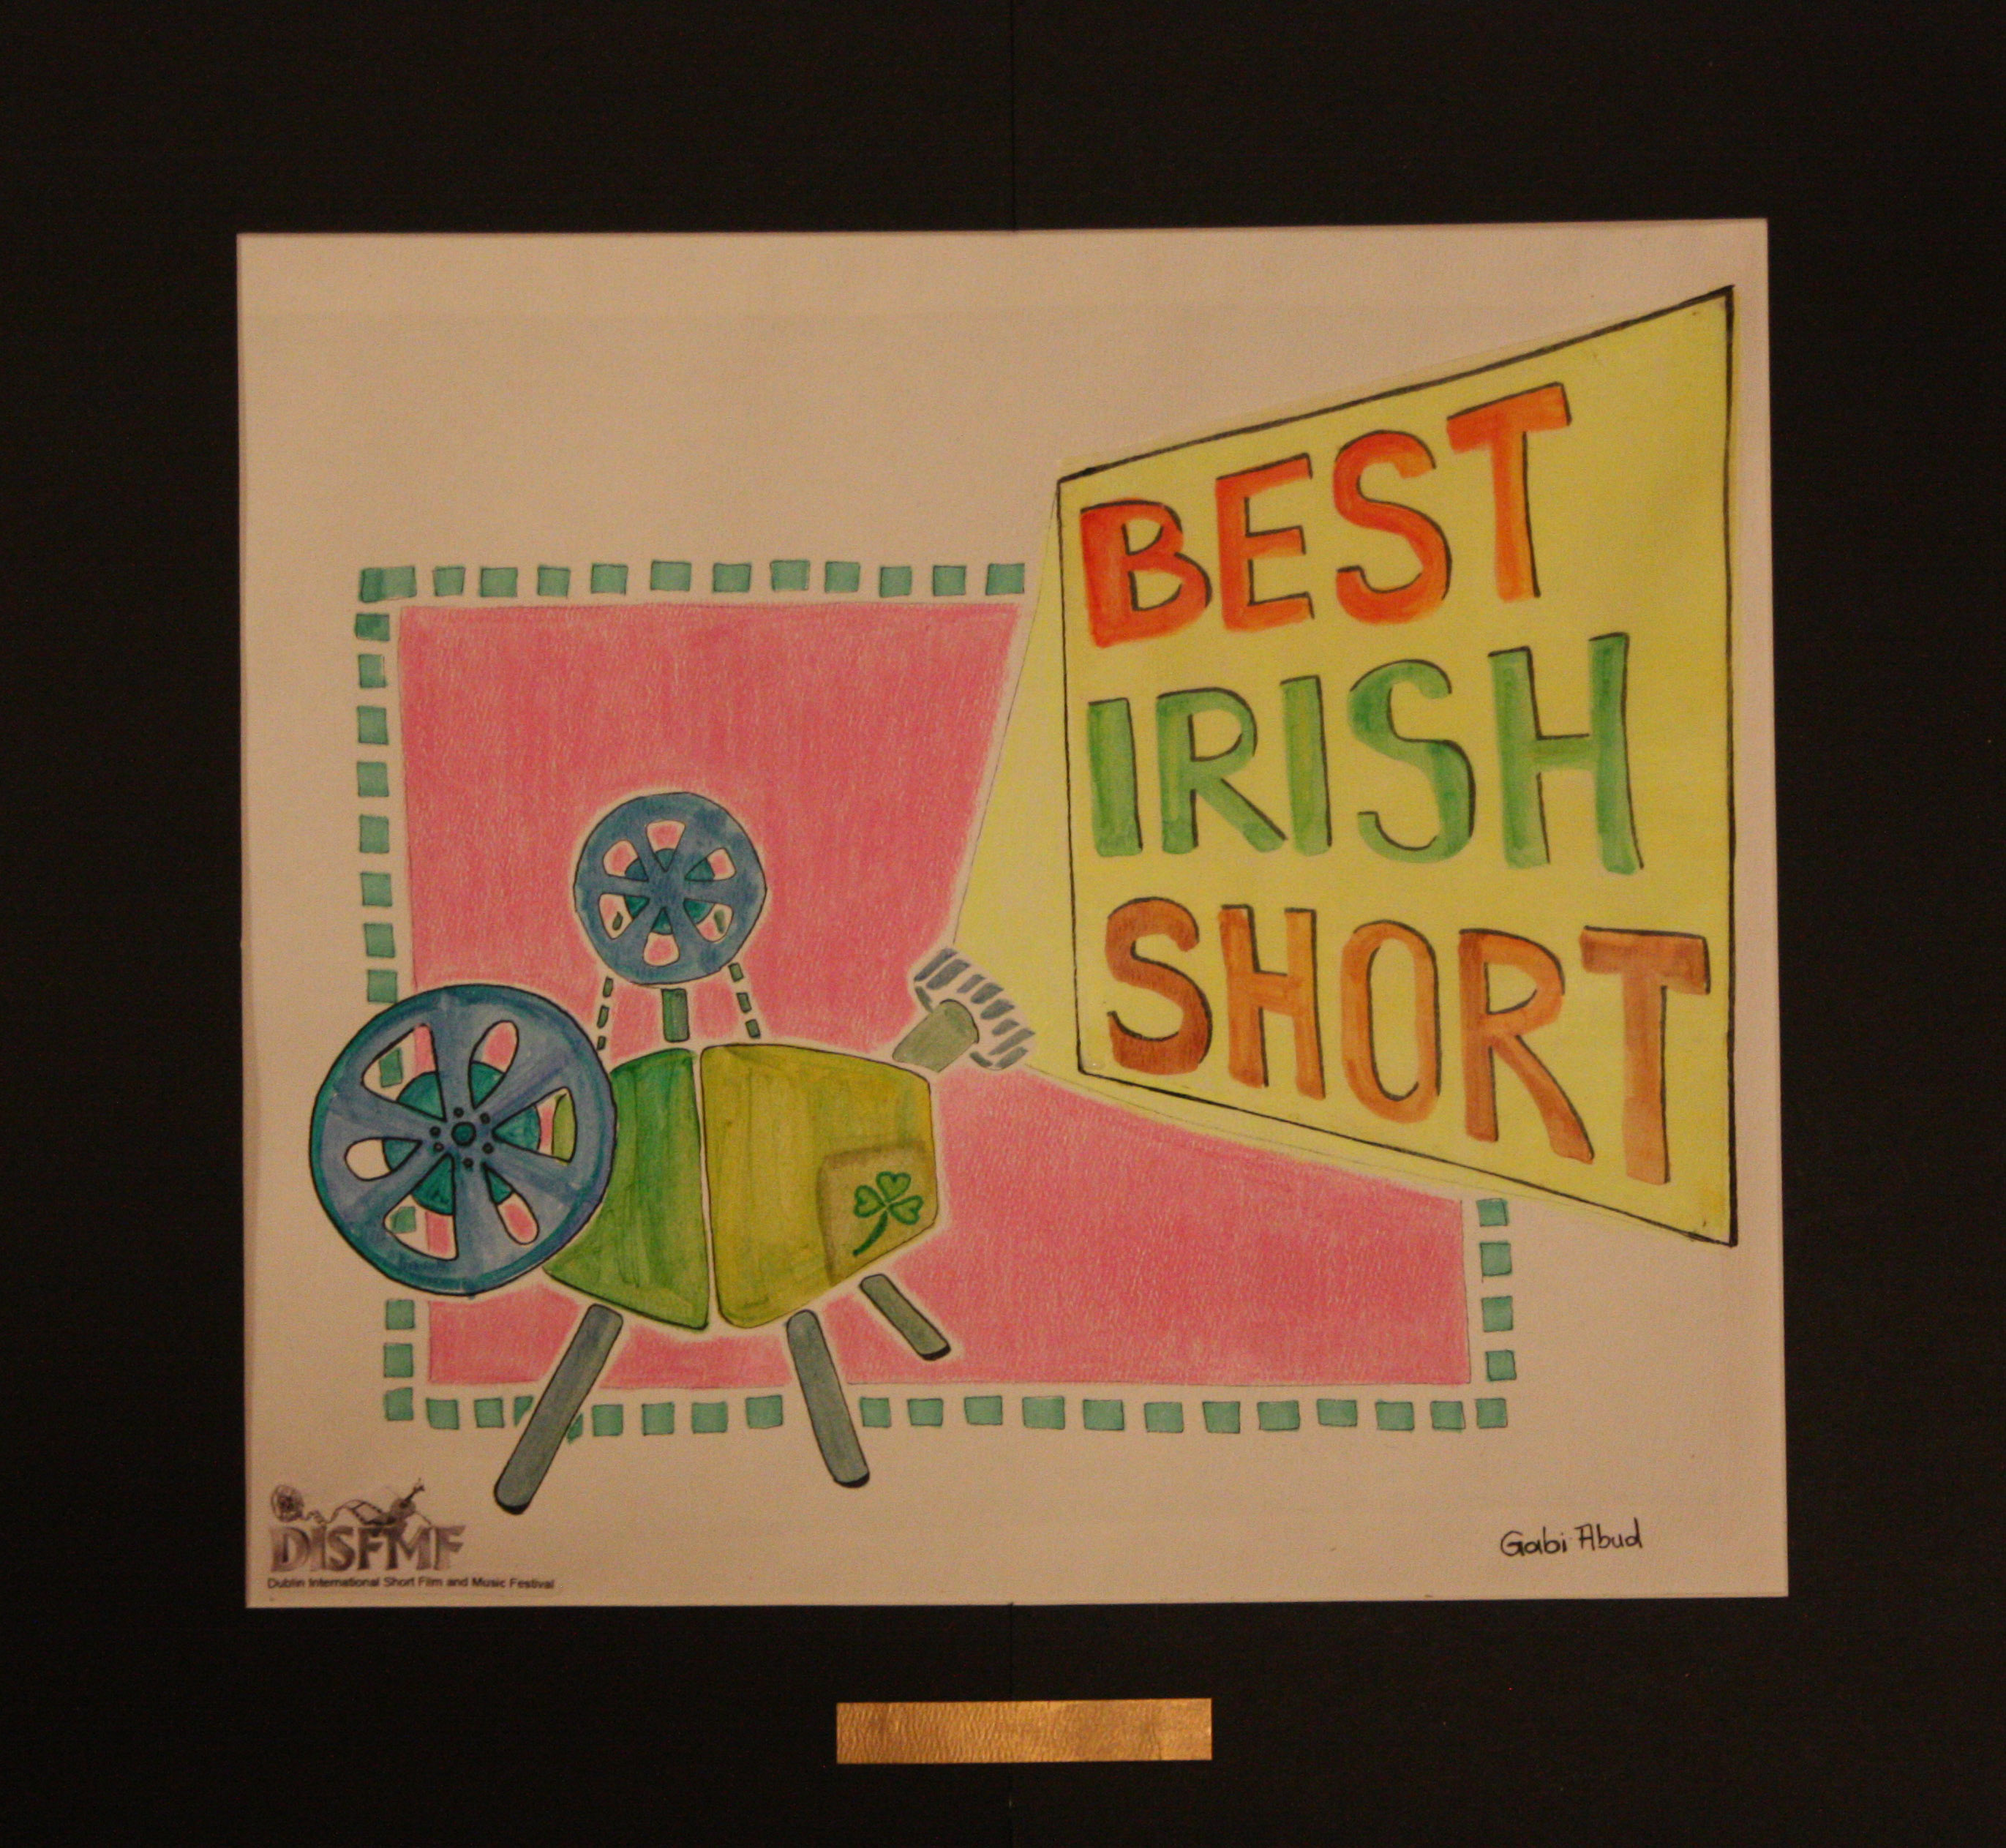 BEST
IRISH
SHORT
DISFMF
Dublin International Short Film and Music Festival
Gabi Abud